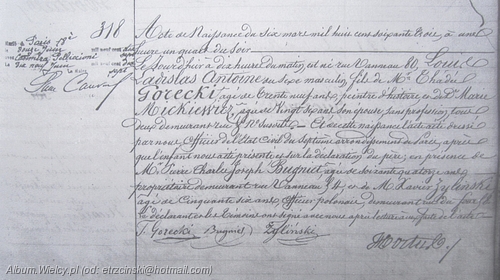 318
Acte de Naissance du Six mars mil huit cent soixante trois, à une
heure un quart du soir
Le jourd'hui à dix heures du matin, est né rue Vanneau 80, Louis
Ladislas Antoine du sexe masculin, fils de Mr. Thadé
Gorecki âgé de trente neuf ans, peintre d'histoire et de De. Marie
Mickiewicz âgée de vingt sept ans, son épouse, sans profession, tous
deux demeurant rue
par nous Officier de l'état Civil du Septième arrondissement de Paris, après
que l'enfant nous a été présenté et sur la déclaration du père, en présence de
Mr. Pierre Charles Joseph Bugniet âgé de soixante quatorze ans
propriétaire demeurant rue Vanneau et de Mr. Xavier Zglinski
âgé de cinquante six ans, Officier polonais, demeurant rue du
le déclarant et les témoins ont signé avec nous après lecture
T. Gorecki Bugniet Zglinski
Paris 18e
douze Juin
Pellerissoni
Album.Wielcy.pl (od: etrzcinski@hotmail.com)